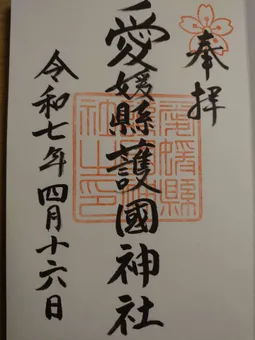 奉拝
愛媛縣護國神社
令和七年四月十六日
愛媛縣
神社印